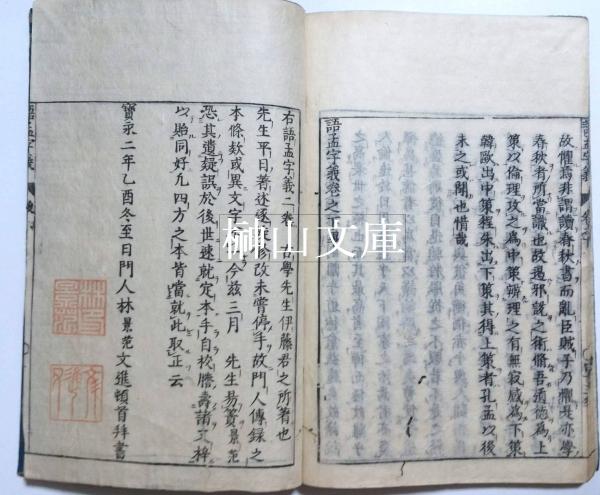 故懼焉非謂讀春秋書而亂臣賊子乃懼是亦學
春秋者所當識也故遏邪說之術脩吾道德為上
策以倫理攻之為中策辨理之有無寂感為下策
韓歐出中策程朱出下策其得上策者孔孟以後
未之或聞也惜哉
語孟字義卷之下
右語孟字義二卷古學先生伊藤君之所著也
先生平日著述逐旋修改未嘗停手故門人傳錄之
本條欵或異文字 今茲三月先生易簀景范
恐其遺疑誤於後世速就定本手自校謄壽諸文梓
以貽同好凡四方之本皆當就此取正云
寶永二年乙酉冬至日門人林景范文進頓首拜書
語孟字義
榊山文庫